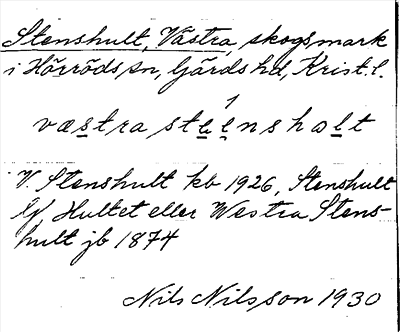 Stenshult, Västra, skogsmark
i Hörröds sn, Gärds hd, Krist. l.
væstra steínshalt
V. Stenshult kb 1926, Stenshult
Hultet eller Westra Stens-
hult jb 1874
Nils Nilsson 1930